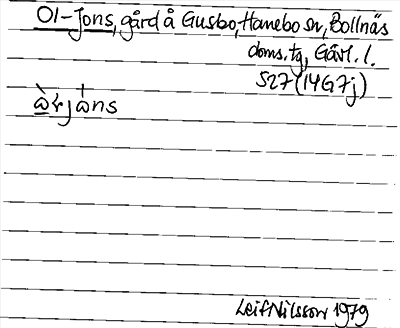 Ol-Jons, gård å Gusbo, Hanebo sn, Bollnäs
doms. tg, Gävl. l.
S27 (14G7j)
Leif Nilsson 1979